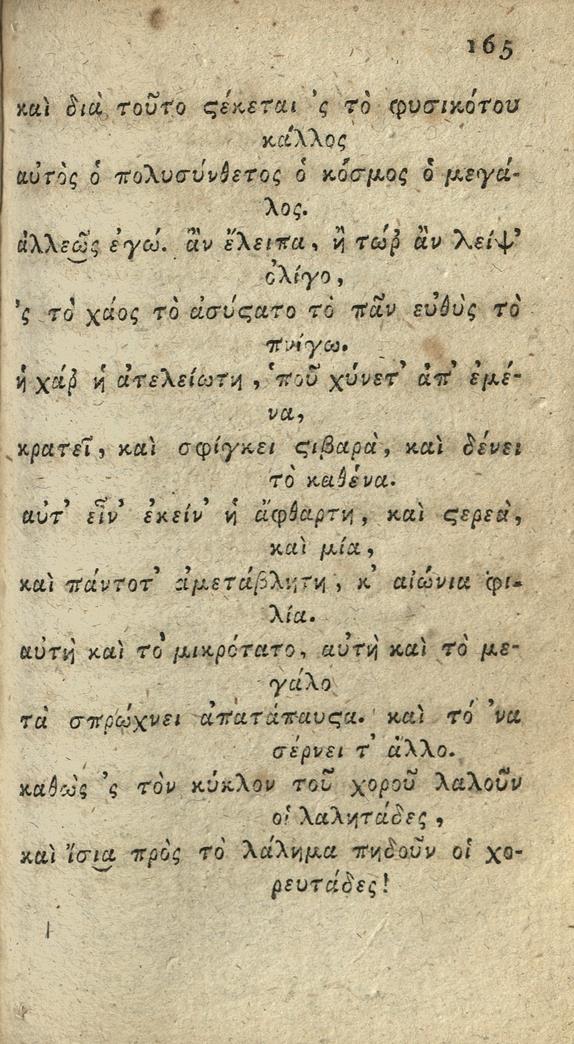 165
καὶ διὰ τοῦτο ϛέκεται 'ς τὸ φυσικότου
κάλλος
αὐτὸς ὁ πολυσύνθετος ὁ κόσμος ὁ μεγά-
λος.
ἀλλεῶς ἐγώ. ἂν ἔλειπα, ἢ τώῤ ἂν λείψ'
ὀλίγο,
'ς τὸ χάος τὸ ἀσύϛατο τὸ πᾶν εὐθὺς τὸ
πνίγω.
ἡ χάῤ ἡ ἀτελείωτη, 'ποῦ χύνετ' ἀπ' ἐμέ-
να,
κρατεῖ, καὶ σφίγκει ϛιβαρὰ, καὶ δένει
τὸ καθένα.
αὐτ' εἶν' ἐκείν' ἡ ἄφθαρτη, καὶ ϛερεὰ,
καὶ μία,
καὶ πάντοτ' ἀμετάβλητη, κ' αἰώνια φι-
λία.
αὐτὴ καὶ τὸ μικρότατο, αὐτὴ καὶ τὸ με-
γάλο
τὰ σπρώχνει ἀπατάπαυϛα. καὶ τό 'να
σέρνει τ' ἄλλο.
καθὼς 'ς τὸν κύκλον τοῦ χοροῦ λαλοῦν
οἱ λαλητάδες,
καὶ ἴσια πρὸς τὸ λάλημα πηδοῦν οἱ χο-
ρευτάδες!